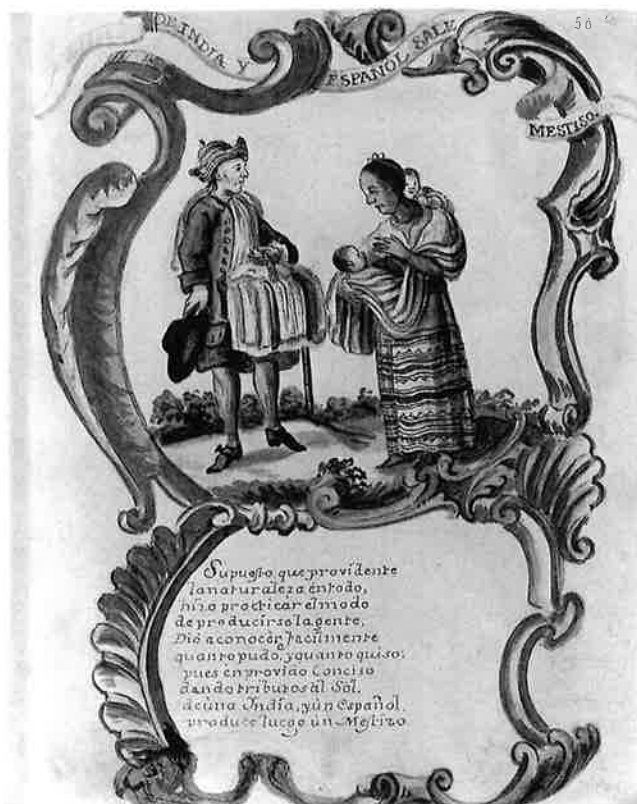 56
DE INDIA Y
ESPAÑOL SALE
MESTISO.
Supuesto que providente
la naturaleza en todo,
hizo practicar el modo
de producirse la gente,
Dió a conocer facilmente
quanto pudo, y quanto quiso:
pues en proviáo Conciso
dando tributos al Sol,
de una India, y un Español,
produce luego ún Mestizo.